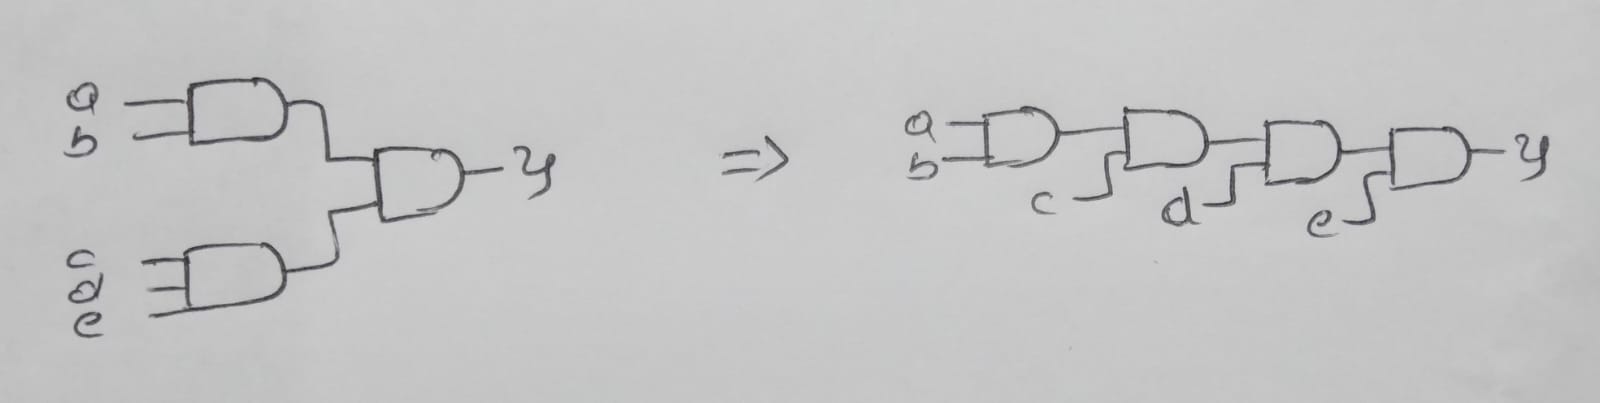 a
b
y
c
d
e
⇒
a
b
c
d
e
y